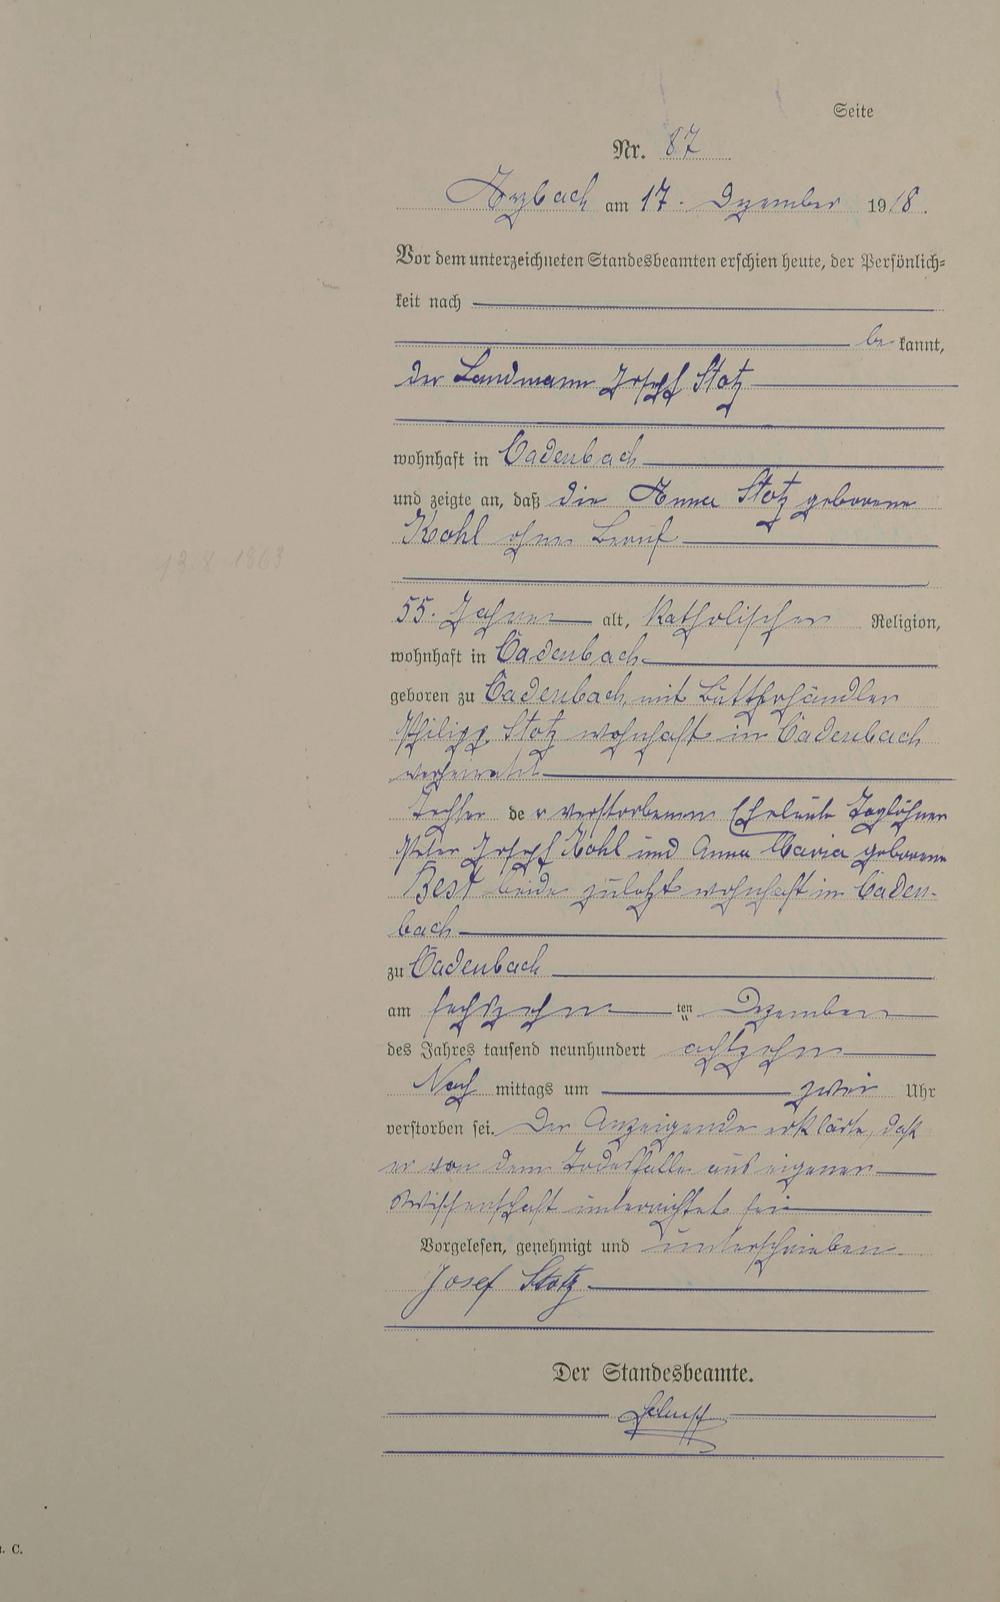 Seite
Nr. 87
Arzbach am 17. Dezember 1918.
Vor dem unterzeichneten Standesbeamten erschien heute, der Persönlich=
keit nach
be kannt,
der Landmann Joseph Stotz
wohnhaft in Cadenbach
und zeigte an, daß die Anna Stotz geborene
Kohl ohne Beruf
13.8.1863
55. Jahre alt, katholischer Religion,
wohnhaft in Cadenbach
geboren zu Cadenbach, mit Butterhändler
Philipp Stotz wohnhaft in Cadenbach
verheiratet
Tochter der verstorbenen Eheleute Taglöhner
Peter Joseph Kohl und Anna Maria geborene
Best beide zuletzt wohnhaft in Caden-
bach
zu Cadenbach
am sechszehn ten Dezember
des Jahres tausend neunhundert achtzehn
Nach mittags um zwei Uhr
verstorben sei. Der Anzeigende erklärte, daß
er von dem Todesfalle aus eigener
Wissenschaft unterrichtet sei
Vorgelesen, genehmigt und unterschrieben
Josef Stotz
Der Standesbeamte.
. C.